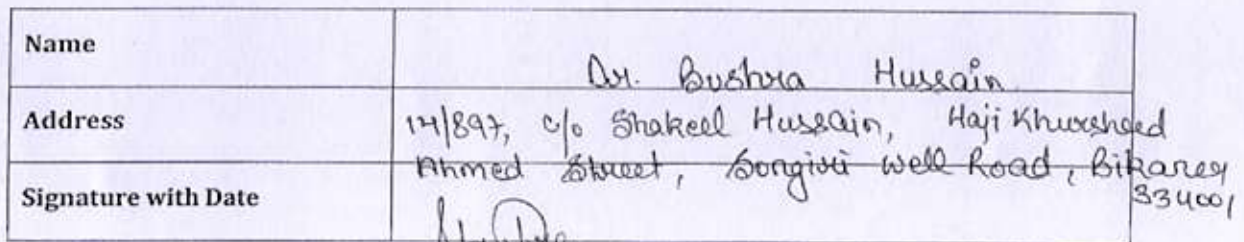 Name
Dr. Bushra Hussain
Address
14/897, c/o Shakeel Hussain, Haji Khursheed
Ahmed Street, Songiri Well Road, Bikaner
334001
Signature with Date